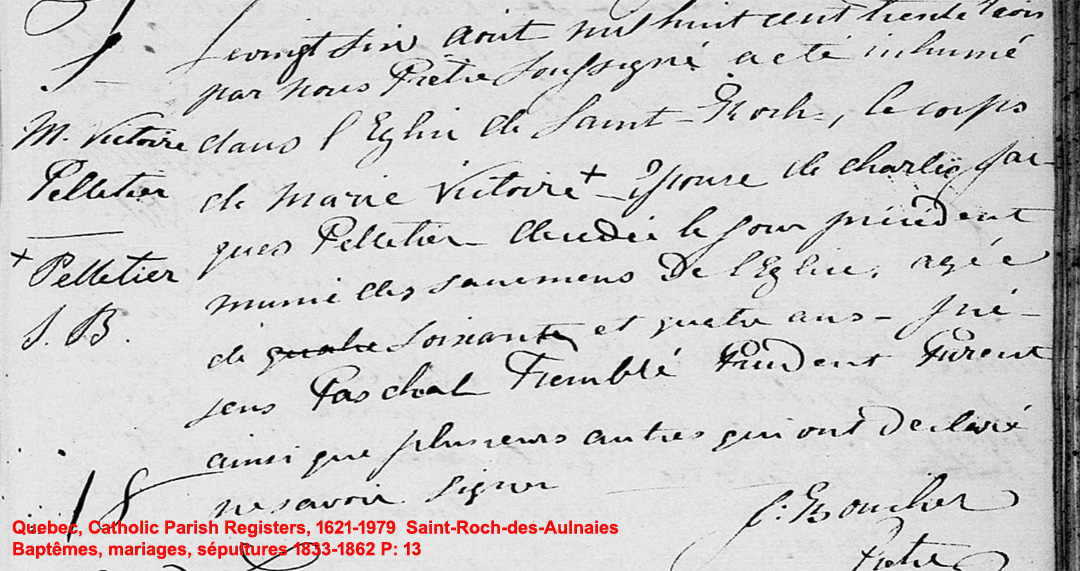 Le vingt six aout mil huit cent trente trois
par nous Prêtre soussigné a eté inhumé
M. Victoire
Pelletier
+ Pelletier
J. B.
dans l'Eglise de Saint-Roch, le corps
de Marie Victoire + Epouse de charles jac-
ques Pelletier decedée le jour précédent
munie des sacremens De l'Eglise, agée
de quatre soixante et quatre ans - pré-
sens Paschal Tremblé Prudent Parent
ainsi que plusieurs autres qui ont declaré
ne savoir signer
Boucher
Prêtre
18
Quebec, Catholic Parish Registers, 1621-1979 Saint-Roch-des-Aulnaies
Baptêmes, mariages, sépultures 1833-1862 P: 13